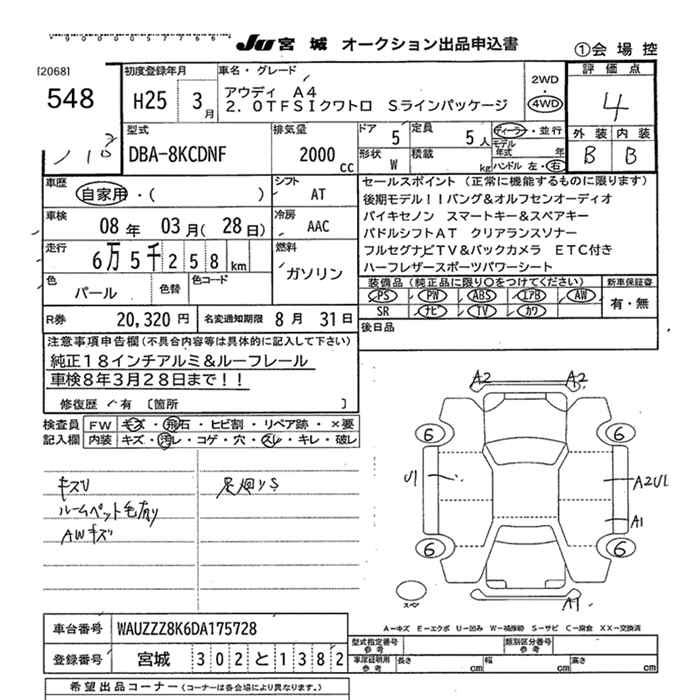 JU 宮城 オークション出品申込書
①会場控
[2068]
548
初度登録年月
H25 3月
車名・グレード
アウディ A4
2.0TFSIクワトロ Sラインパッケージ
2WD
4WD
評価点
4
外装 内装
B B
型式
DBA-8KCDNF
排気量
2000 cc
ドア 5
定員 5人
形状 W
積載 kg
ディーラー・並行
モデル年式 年
ハンドル 左・右
車歴
自家用・( )
シフト
AT
車検
08年 03月(28日)
冷房
AAC
走行
6万5千258km
燃料
ガソリン
色
パール
色替
色コード
R券 20,320円
名変通知期限 8月31日
セールスポイント (正常に機能するものに限ります)
後期モデル!!バング&オルフセンオーディオ
バイキセノン スマートキー&スペアキー
パドルシフトAT クリアランスソナー
フルセグナビTV&バックカメラ ETC付き
ハーフレザースポーツパワーシート
装備品(純正品に限り○をつけてください)
新車保証書
PS PW ABS エアB AW
SR ナビ TV カワ
有・無
後日品
注意事項申告欄(不具合内容等は具体的に記入して下さい)
純正18インチアルミ&ルーフレール
車検8年3月28日まで!!
修復歴・有 〔箇所 〕
検査員記入欄
FW キズ・飛石・ヒビ割・リペア跡・×要
内装 キズ・汚レ・コゲ・穴・スレ・キレ・破レ
キズU
ルームペット毛有り
AWキズ
足廻りS
A2 A2
6 6
U1
A2U1
A1
6 6
スペア
A1
A-キズ E-エクボ U-凹ミ W-補修跡 S-サビ C-腐食 XX-交換済
車台番号 WAUZZZ8K6DA175728
登録番号 宮城 302 と 1382
型式指定番号 参考
類別区分番号 参考
車庫証明用 参考
長さ cm 幅 cm 高さ cm
希望出品コーナー (コーナーは各会場により異なります。)